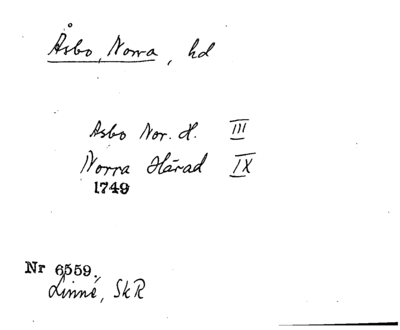 Åsbo, Norra, hd
Asbo Nor. H. III
Norra Härad IX
1749
Nr 6559.
Linné, SkR